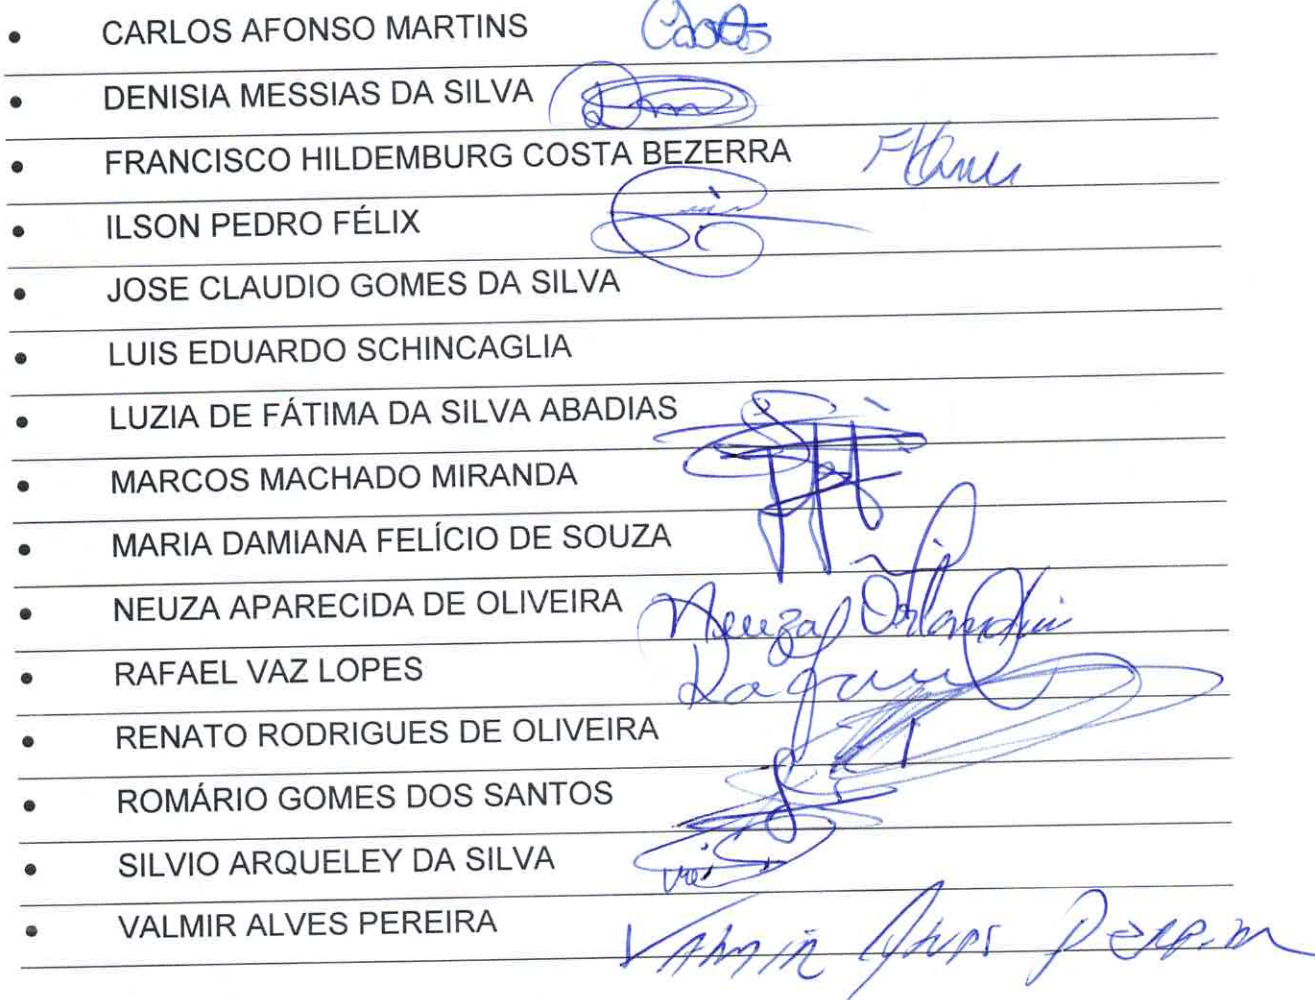 • CARLOS AFONSO MARTINS
• DENISIA MESSIAS DA SILVA
• FRANCISCO HILDEMBURG COSTA BEZERRA
• ILSON PEDRO FÉLIX
• JOSE CLAUDIO GOMES DA SILVA
• LUIS EDUARDO SCHINCAGLIA
• LUZIA DE FÁTIMA DA SILVA ABADIAS
• MARCOS MACHADO MIRANDA
• MARIA DAMIANA FELÍCIO DE SOUZA
• NEUZA APARECIDA DE OLIVEIRA Neuza
• RAFAEL VAZ LOPES
• RENATO RODRIGUES DE OLIVEIRA
• ROMÁRIO GOMES DOS SANTOS
• SILVIO ARQUELEY DA SILVA
• VALMIR ALVES PEREIRA Valmir Alves Pereira